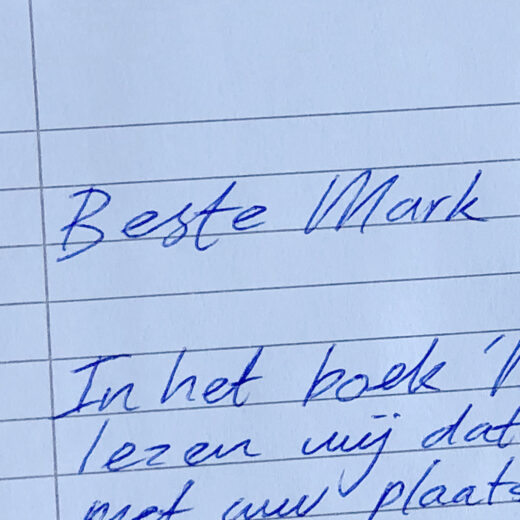 Beste Mark
In het boek '
lezen wij dat
met uw plaats